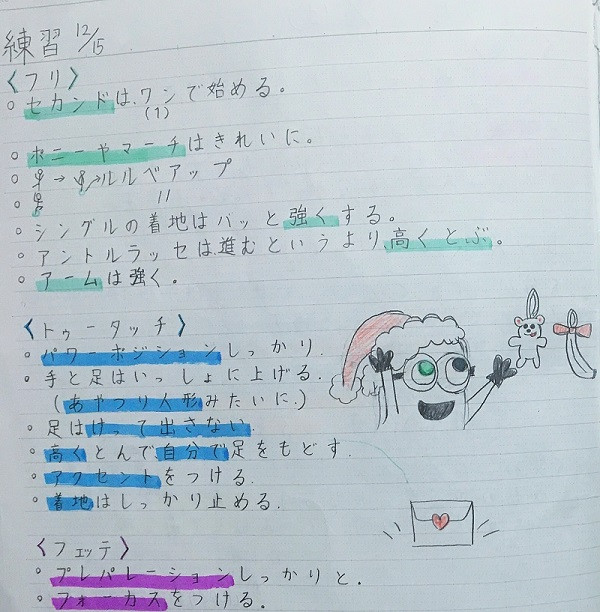 練習 12/15
〈フリ〉
○ セカンドは、ワンで始める。
(1)
○ ポニーやマーチはきれいに。
→ ルルベアップ
〃
○ シングルの着地はバッと強くする。
○ アントルラッセは進むというより高くとぶ。
○ アームは強く。
〈トゥータッチ〉
○ パワーポジションしっかり.
○ 手と足はいっしょに上げる.
(あやつり人形みたいに.)
○ 足はけって出さない.
○ 高くとんで自分で足をもどす.
○ アクセントをつける.
○ 着地はしっかり止める.
〈フェッテ〉
○ プレパレーションしっかりと.
○ フォーカスをつける.